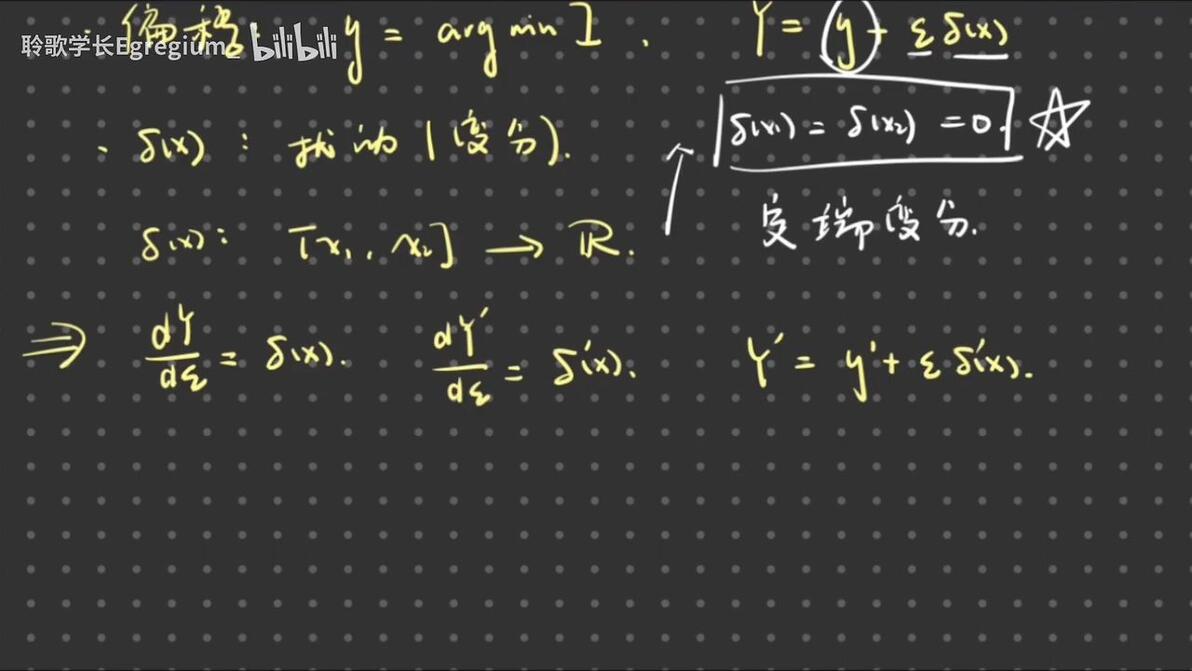 聆歌学长Egregium_ bilibili
· 偏移: y = arg min I . Y = y + ε δ(x)
· δ(x) : 扰动 (变分). δ(x₁) = δ(x₂) = 0. ☆
δ(x): [x₁, x₂] → ℝ. 定端变分.
⇒ dY/dε = δ(x). dY'/dε = δ'(x). Y' = y' + ε δ'(x).